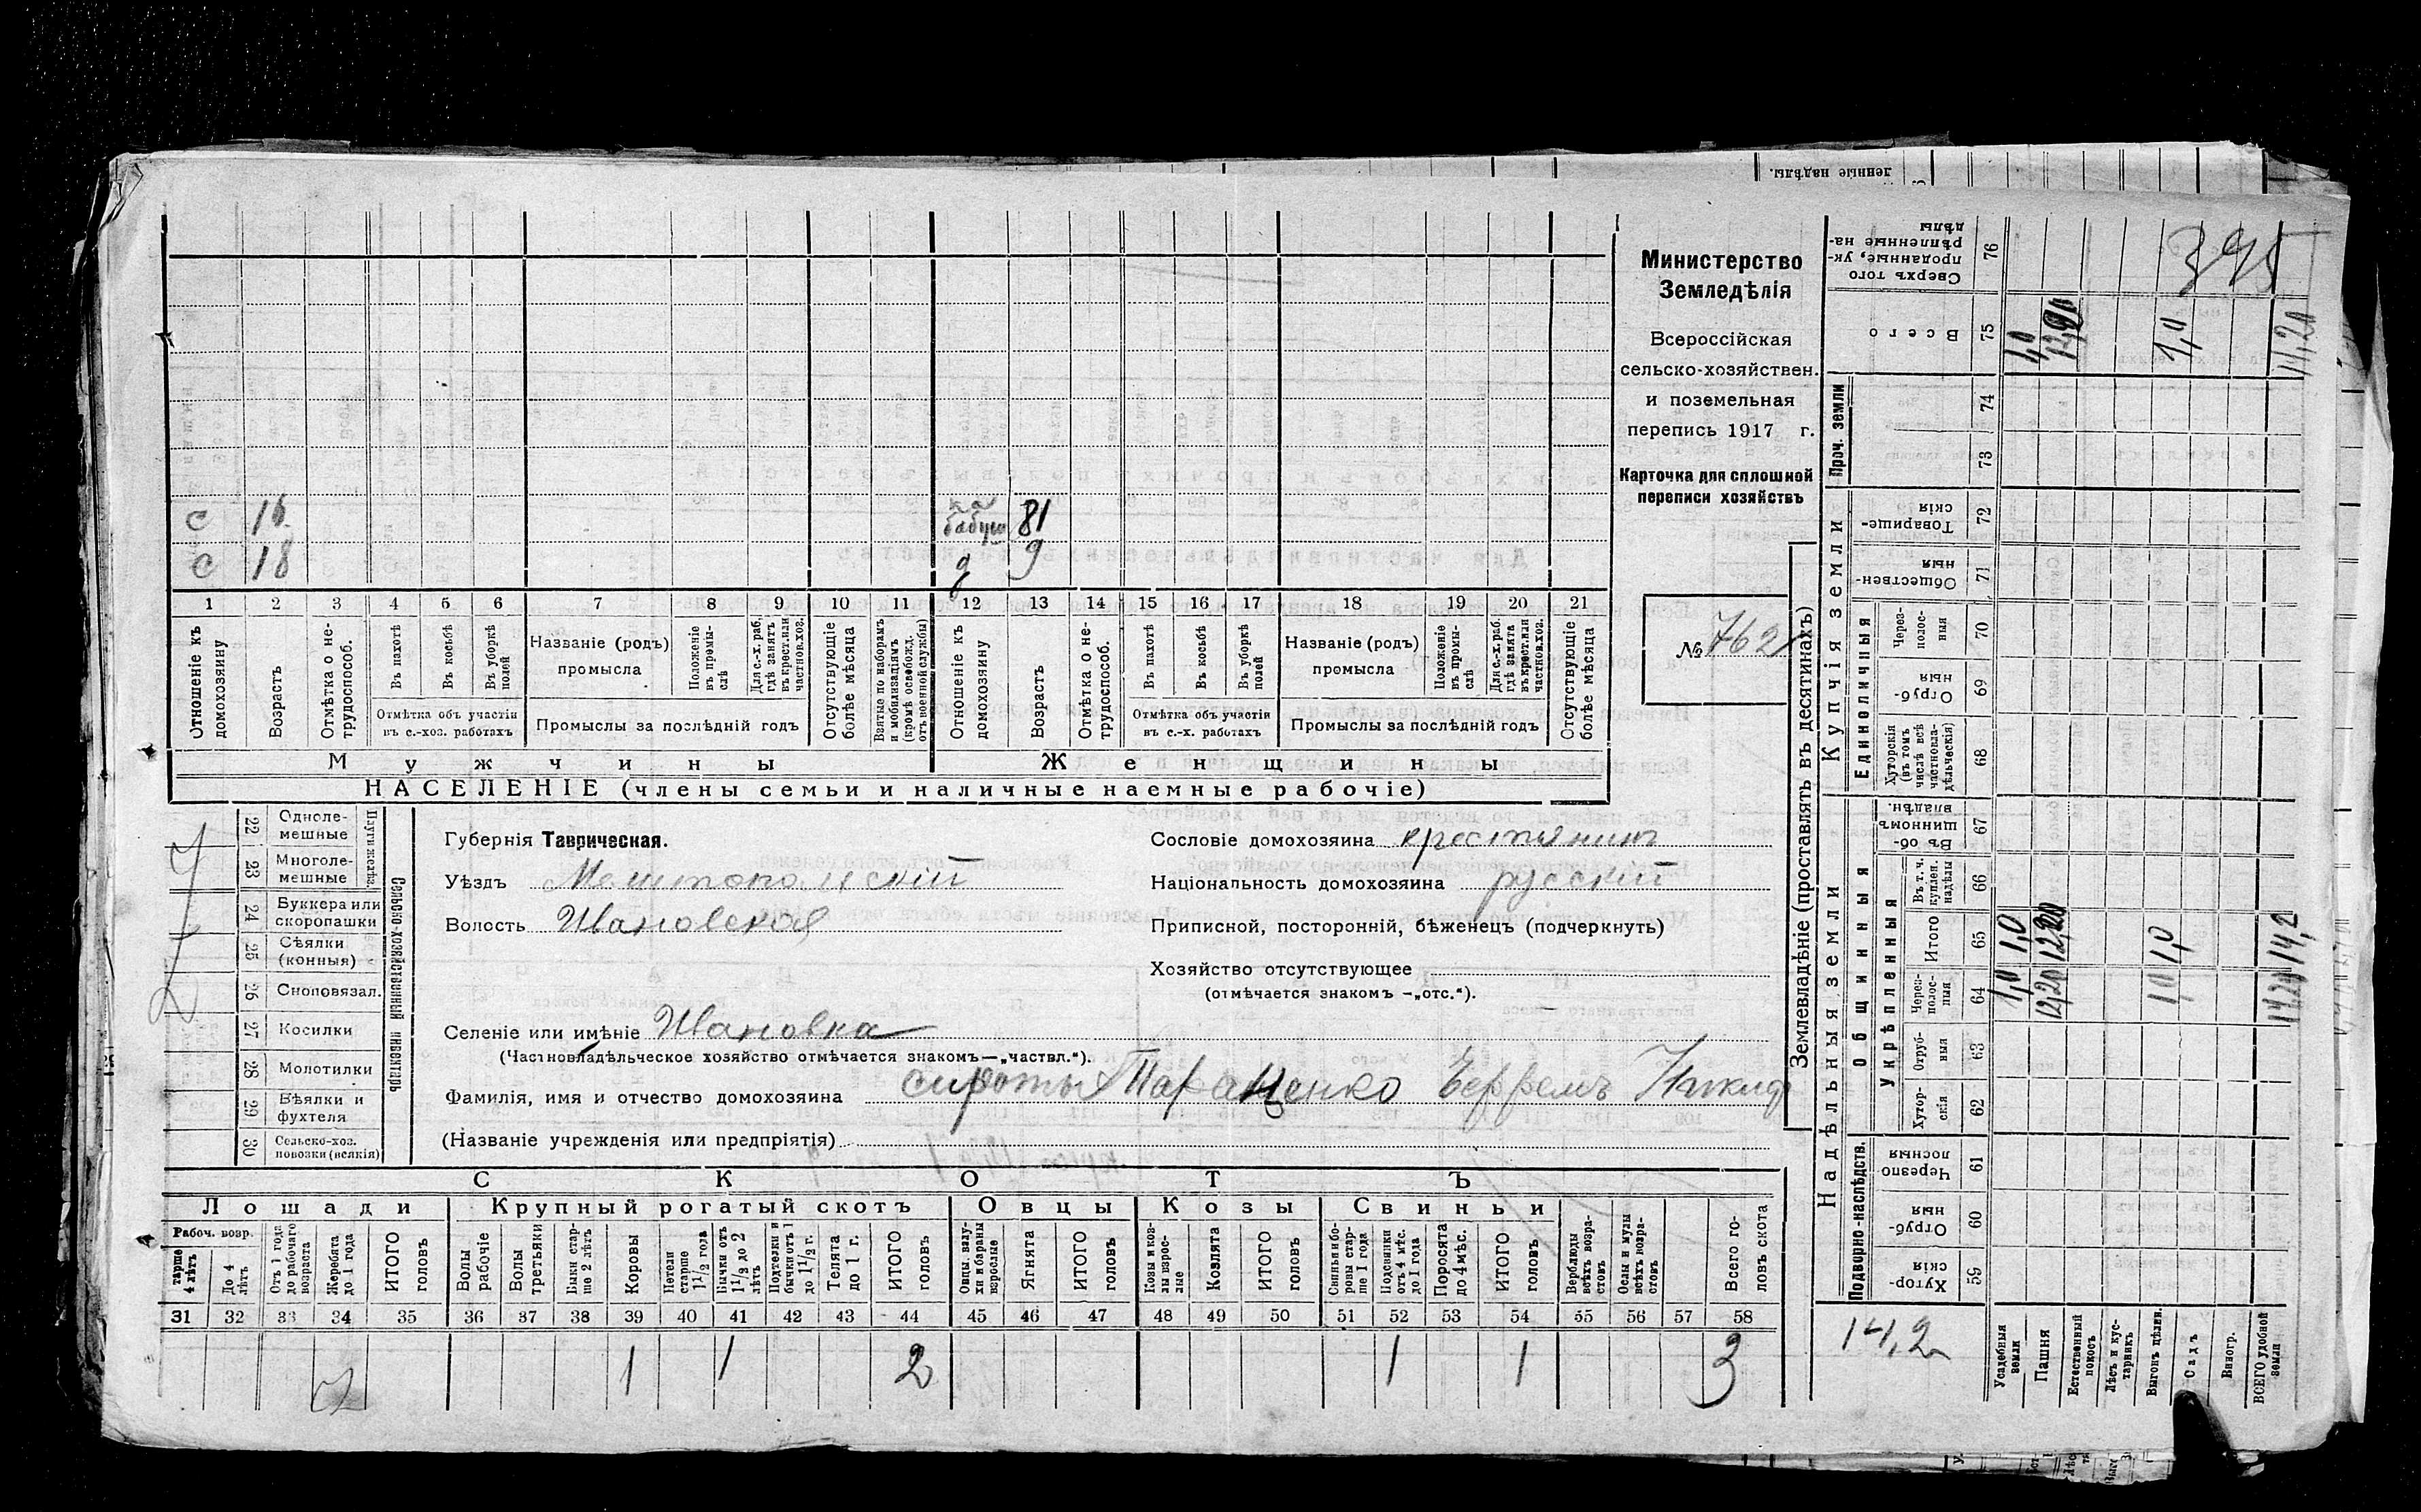 с 16 бабуш 81
с 18 д 9
1 2 3 4 5 6 7 8 9 10 11 12 13 14 15 16 17 18 19 20 21
Отношеніе къ домохозяину
Возрастъ
Отмѣтка о не-
трудоспособ.
Въ пахотѣ
Въ косьбѣ
Въ уборкѣ
полей
Отмѣтка объ участіи
въ с.-хоз. работахъ
Названіе (родъ)
промысла
Положеніе
въ промы-
слѣ
Для с.-х. раб.
гдѣ занятъ
въ крест. или
частнов. хоз.
Промыслы за послѣдній годъ
Отсутствующіе
болѣе мѣсяца
Взятые по наборамъ
и мобилизаціямъ
(кромѣ освобожд.
отъ военной службы)
Отношеніе къ
домохозяину
Возрастъ
Отмѣтка о не-
трудоспособ.
Въ пахотѣ
Въ косьбѣ
Въ уборкѣ
полей
Отмѣтка объ участіи
въ с.-х. работахъ
Названіе (родъ)
промысла
Положеніе
въ промы-
слѣ
Для с.-х. раб.
гдѣ занята
въ крест. или
частнов. хоз.
Промыслы за послѣдній годъ
Отсутствующіе
болѣе мѣсяца
Мужчины Женщины
НАСЕЛЕНІЕ (члены семьи и наличные наемные рабочіе)
Министерство
Земледѣлія
Всероссійская
сельско-хозяйствен.
и поземельная
перепись 1917 г.
Карточка для сплошной
переписи хозяйствъ
№ 762
22 Одноле-
мешные
23 Многоле-
мешные
Плуги желѣз.
24 Буккера или
скоропашки
25 Сѣялки
(конныя)
26 Сноповязал.
27 Косилки
28 Молотилки
29 Вѣялки и
фухтеля
30 Сельско-хоз.
повозки (всякія)
Сельско-хозяйственный инвентарь
Губернія Таврическая.
Уѣздъ Мелитопольскій
Волость Ивановская
Селеніе или имѣніе Ивановка
(Частновладѣльческое хозяйство отмѣчается знакомъ—„частвл.“).
Фамилія, имя и отчество домохозяина сироты Таращенко Ефремъ Никиф
(Названіе учрежденія или предпріятія)
Сословіе домохозяина крестьянинъ
Національность домохозяина русскій
Приписной, посторонній, бѣженецъ (подчеркнуть)
Хозяйство отсутствующее
(отмѣчается знакомъ —„отс.“).
СКОТЪ
Лошади Крупный рогатый скотъ Овцы Козы Свиньи
Рабоч. возр.
старше
4 лѣтъ
До 4
лѣтъ
Отъ 1 года
до рабочаго
возраста
Жеребята
до 1 года
ИТОГО
головъ
Волы
рабочіе
Волы
третьяки
Быки стар-
ше 2 лѣтъ
Коровы
Нетели
старше
1 1/2 года
Бычки отъ
1 1/2 до 2
лѣтъ
Подтелки и
бычки отъ 1
до 1 1/2 г.
Телята
до 1 г.
ИТОГО
головъ
Овцы, валу-
хи и бараны
взрослые
Ягнята
ИТОГО
головъ
Козы и коз-
лы взрос-
лые
Козлята
ИТОГО
головъ
Свиньи и бо-
ровы стар-
ше 1 года
Подсвинки
отъ 4 мѣс.
до 1 года
Поросята
до 4 мѣс.
ИТОГО
головъ
Верблюды
всѣхъ возра-
стовъ
Ослы и мулы
всѣхъ возра-
стовъ
Всего го-
ловъ скота
31 32 33 34 35 36 37 38 39 40 41 42 43 44 45 46 47 48 49 50 51 52 53 54 55 56 57 58
1 1 2 1 1 3
Землевладѣніе (проставлять въ десятинахъ)
Надѣльныя земли
Подворно-наслѣдств.
Хутор-
скія 59
Отруб-
ныя 60
Черезпо
лосныя 61
Общинныя
Укрѣпленныя
Хутор-
скія 62
Отруб-
ныя 63
Через-
полос-
ныя 64 1,0 12,20 1,0 14,20
Итого 65 1,0 12,20 1,0 14,2
Въ т. ч.
куплен.
надѣлы 66
Въ об-
щинномъ
владѣн. 67
Купчія земли
Единоличныя
Хуторскія
(въ томъ
числѣ всѣ
частновла-
дѣльческія) 68
Отруб-
ныя 69
Через-
полос-
ныя 70
Обществен-
ныя 71
Товарище-
скія 72
Проч. земли
73
74
Всего 75 1,0 12,20 1,0 14,20
Сверхъ того
проданные, ук-
рѣпленные на-
дѣлы 76
395
14,2
Усадебныя
земли
Пашня
Естественный
покосъ
Лѣсъ и кус-
тарникъ
Выгонъ цѣлин.
Садъ
Виногр.
ВСЕГО удобной
земли